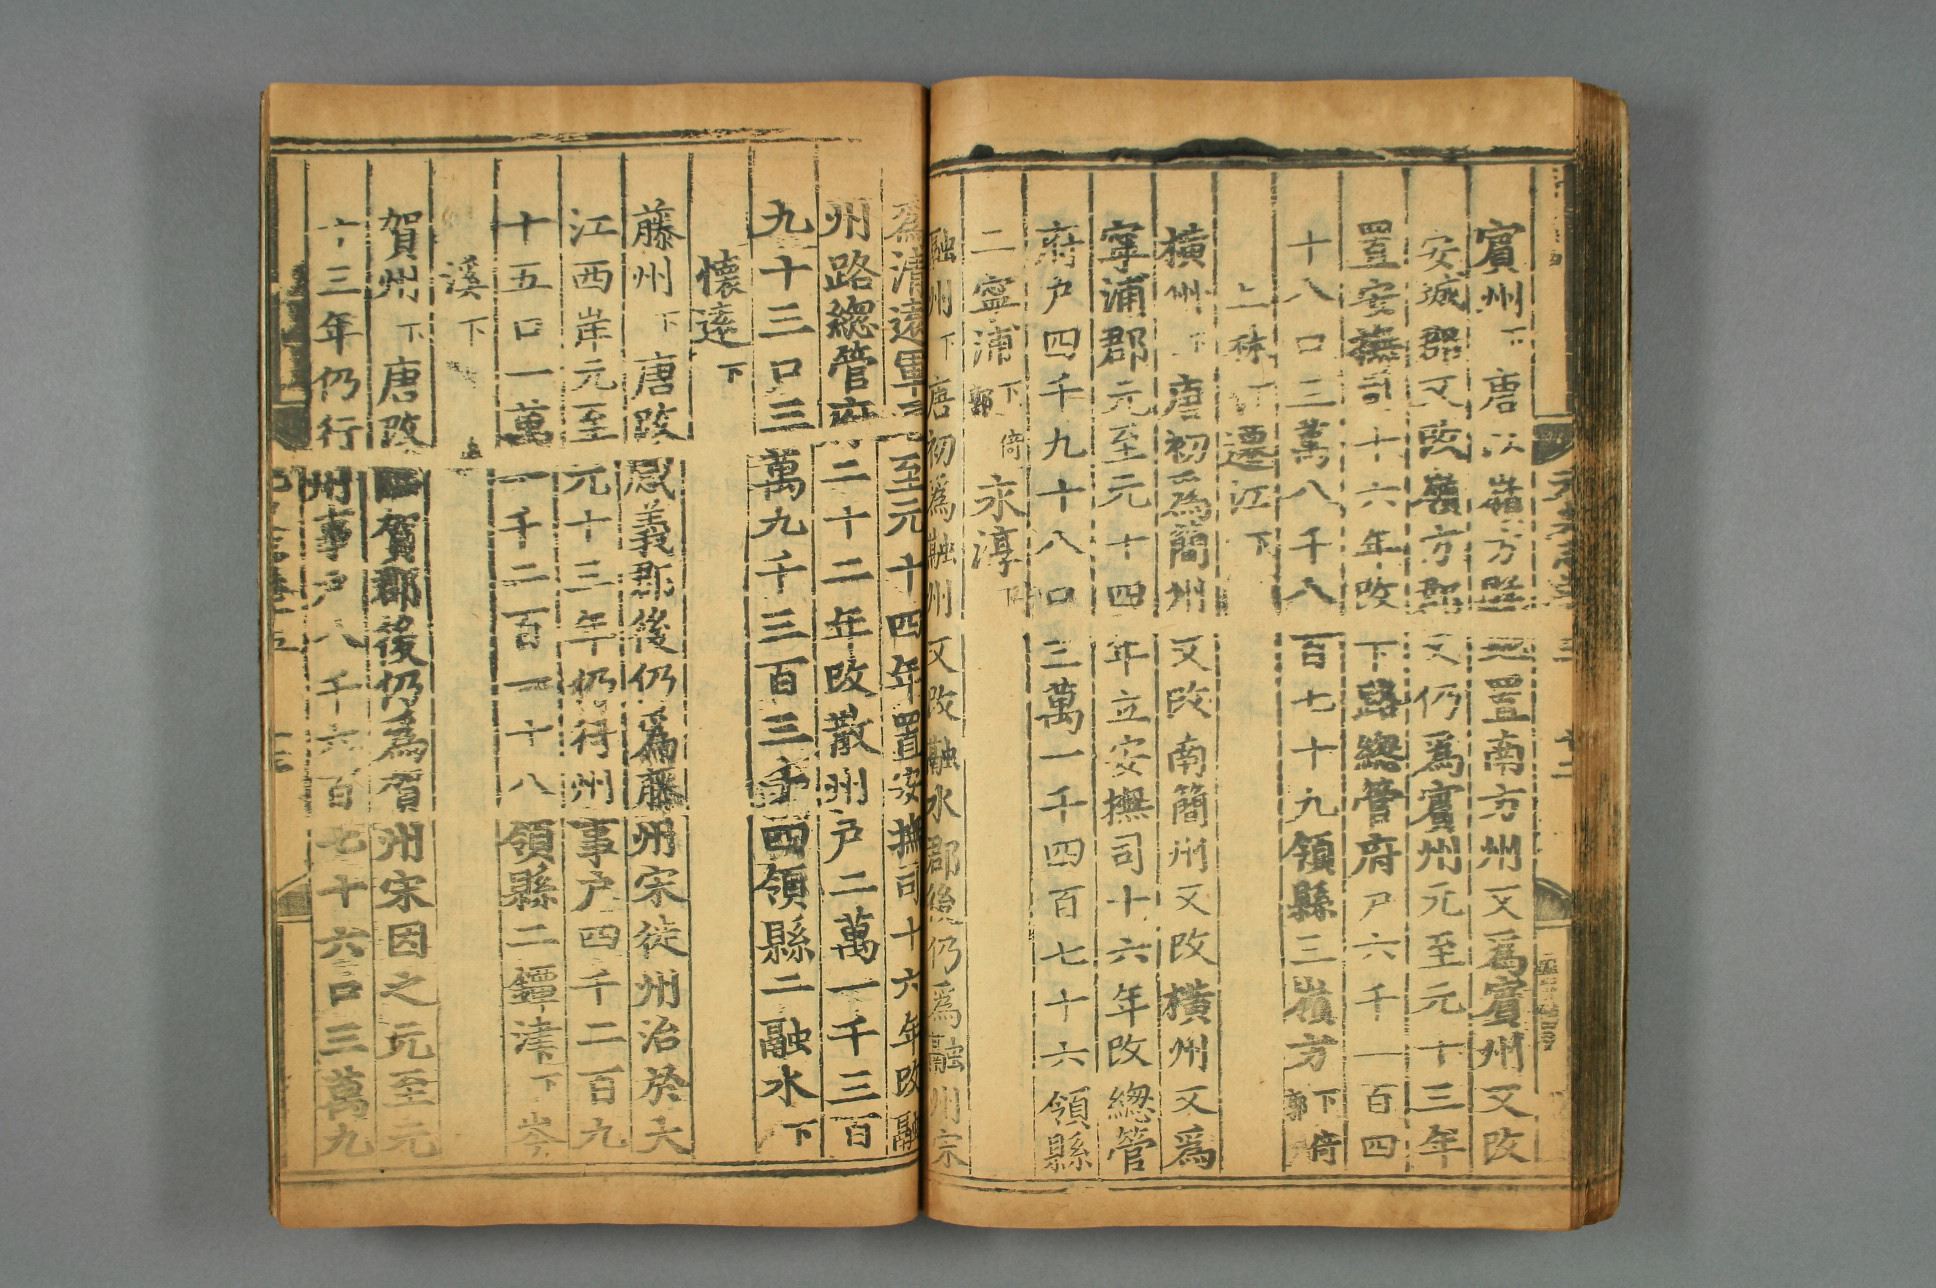 賓州下唐以嶺方縣地置南方州又爲賓州又改
安城郡又改嶺方郡又仍爲賓州元至元十三年
置安撫司十六年改下路總管府戶六千一百四
十八口三萬八千八百七十九領縣三嶺方下倚郭
上林下遷江下
橫州下唐初爲簡州又改南簡州又改橫州又爲
寧浦郡元至元十四年立安撫司十六年改總管
府戶四千九十八口三萬一千四百七十六領縣
二寧浦下倚郭永淳下
融州下唐初爲融州又改融水郡後仍爲融州宋
爲清遠軍元至元十四年置安撫司十六年改融
州路總管府二十二年改散州戶二萬一千三百
九十三口三萬九千三百三十四領縣二融水下
懷遠下
藤州下唐改感義郡後仍爲藤州宋徙州治於大
江西岸元至元十三年仍行州事戶四千二百九
十五口一萬一千二百一十八領縣二鐔津下岑
溪下
賀州下唐改臨賀郡後仍爲賀州宋因之元至元
十三年仍行州事戶八千六百七十六口三萬九